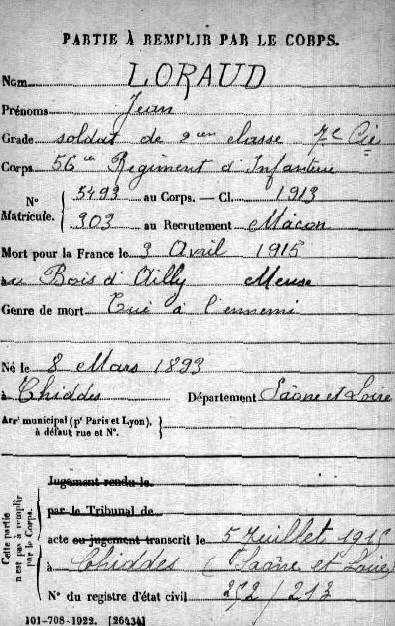 PARTIE À REMPLIR PAR LE CORPS.
Nom LORAUD
Prénoms Jean
Grade soldat de 2eme classe 7e Cie
Corps 56me Régiment d'Infanterie
N° Matricule. { 5493 au Corps. — Cl. 1913
303 au Recrutement Mâcon
Mort pour la France le 3 Avril 1915
au Bois d'Ailly Meuse
Genre de mort Tué à l'ennemi
Né le 8 Mars 1893
à Chiddes Département Saône et Loire
Arrt municipal (pr Paris et Lyon), à défaut rue et N°.
Cette partie n'est pas à remplir par le Corps.
Jugement rendu le
par le Tribunal de
acte ou jugement transcrit le 5 Juillet
à Chiddes (Saône et Loire)
N° du registre d'état civil / 213
101-708-1922. [26434]